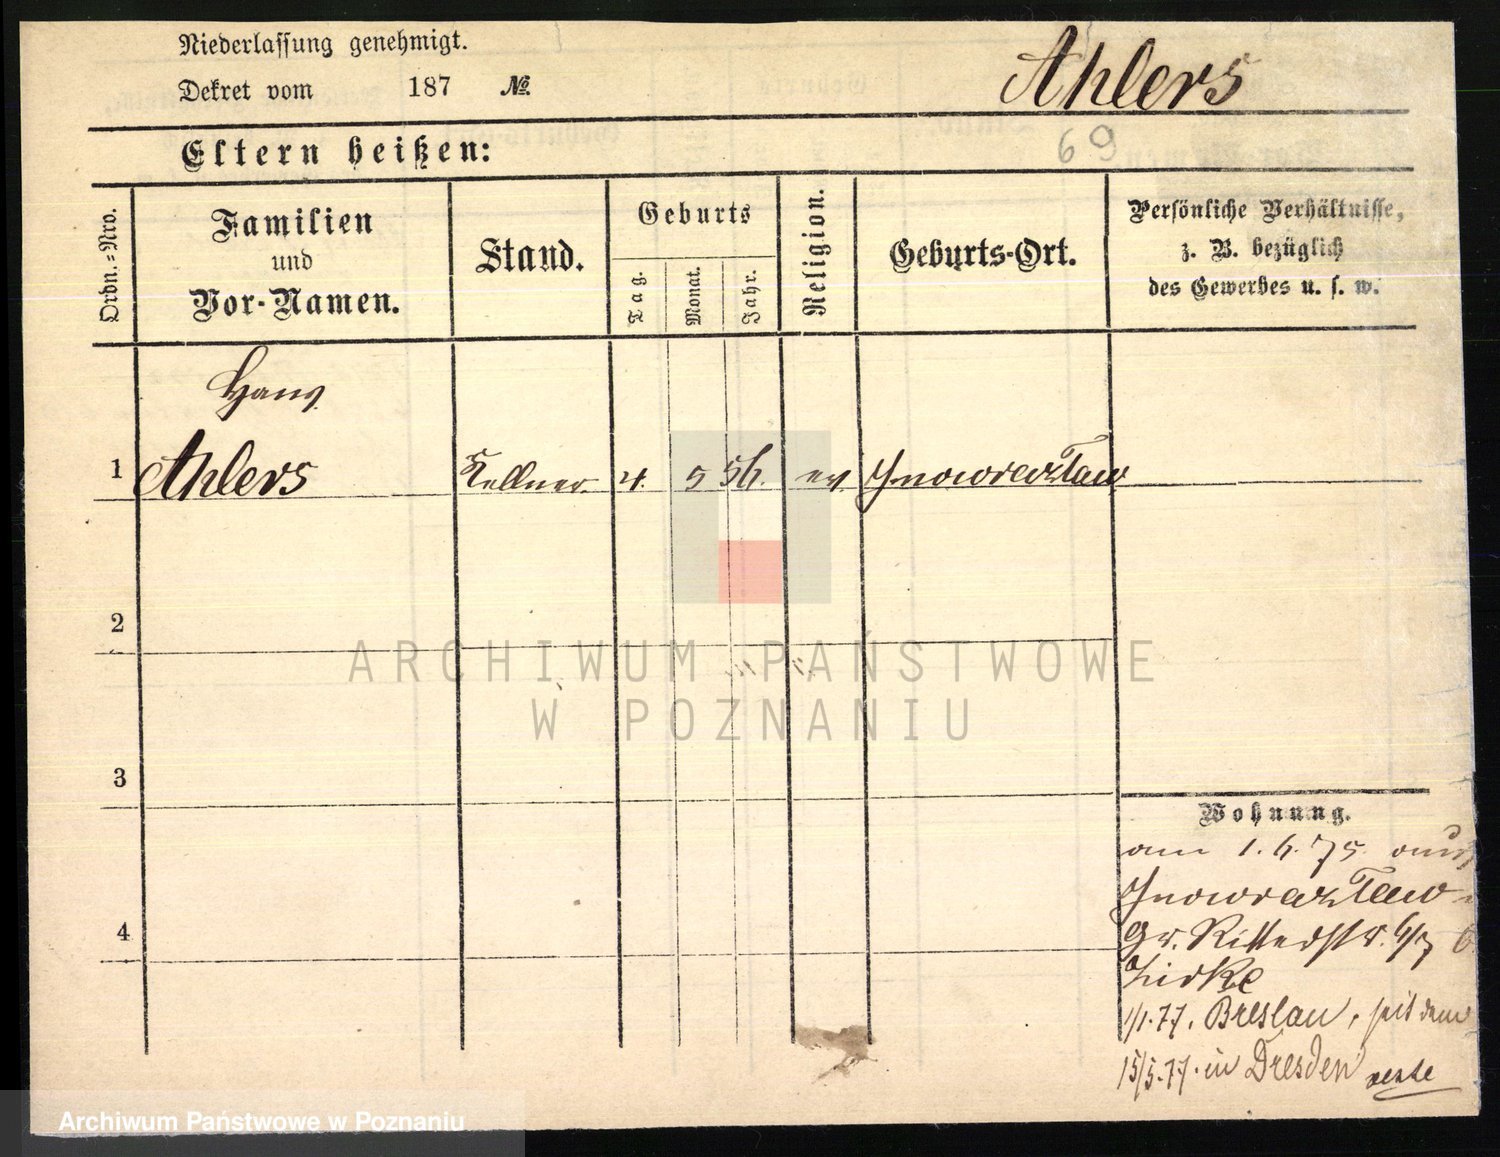 Niederlassung genehmigt.
Dekret vom 187 №.
Ahlers
69
Eltern heißen:
Ordn.-Nro.
Familien
und
Vor-Namen.
Stand.
Geburts
Tag.
Monat.
Jahr.
Religion.
Geburts-Ort.
Persönliche Verhältnisse,
z. B. bezüglich
des Gewerbes u. s. w.
Hans
1 Ahlers Kellner. 4. 5 56. ev. Inowrazlaw
2
3
4
Wohnung.
am 1.6.75 aus
Inowrazlaw
Gr. Ritterstr. 6/7
Zirke
1/1.77. Breslau, seit dem
15/5.77. in Dresden
ARCHIWUM PAŃSTWOWE
W POZNANIU
Archiwum Państwowe w Poznaniu